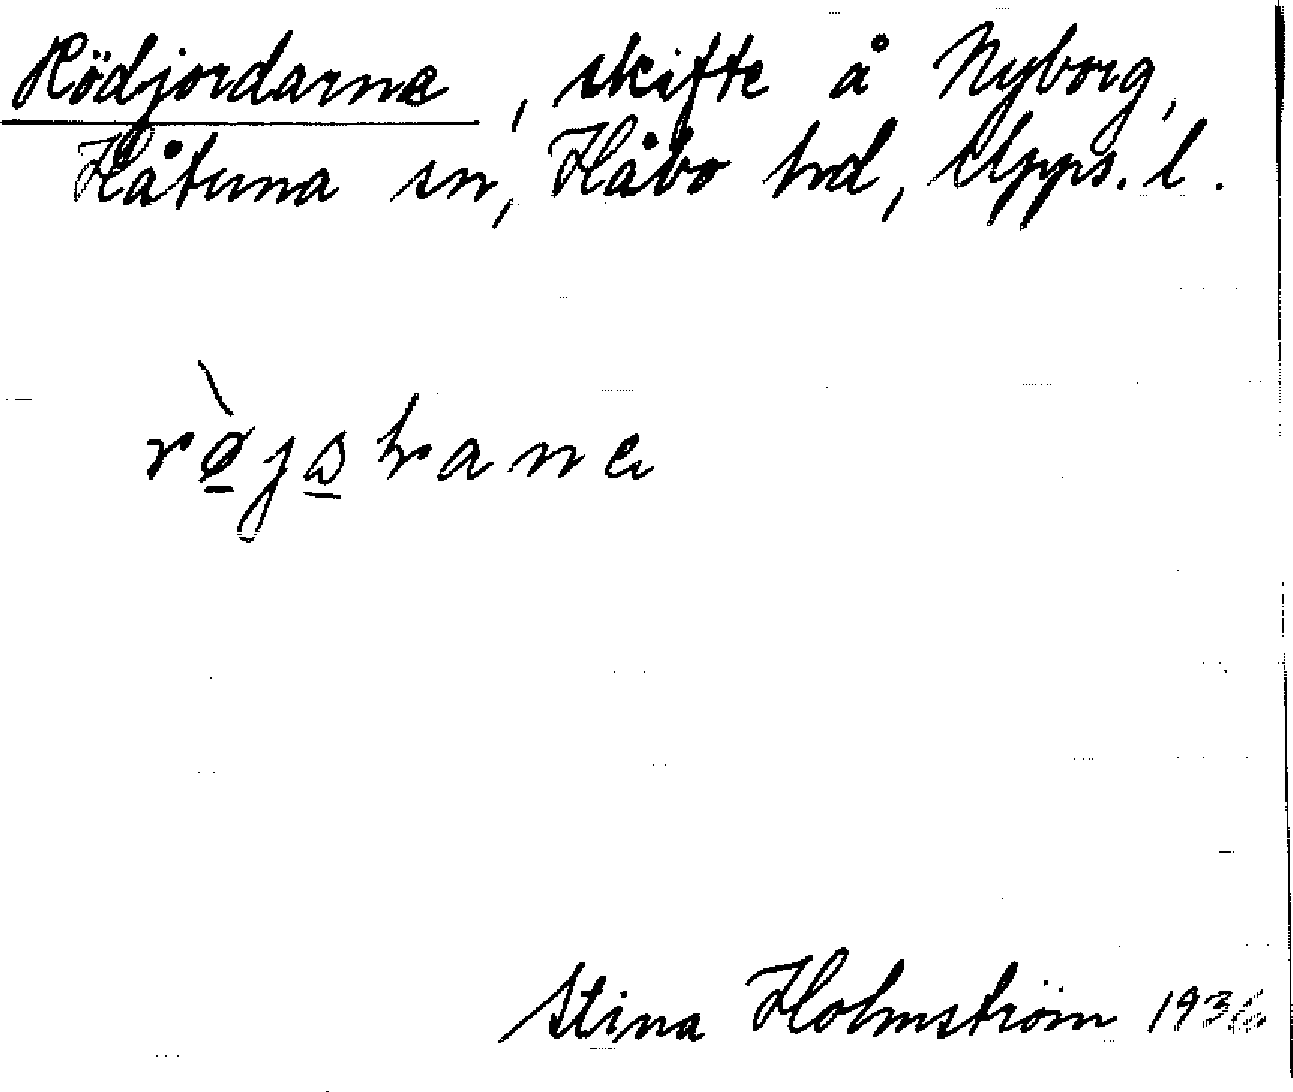 Rödjordarna, skifte å Nyborg,
Håtuna sn, Håbo hd, Upps. l.
Stina Holmström 1936